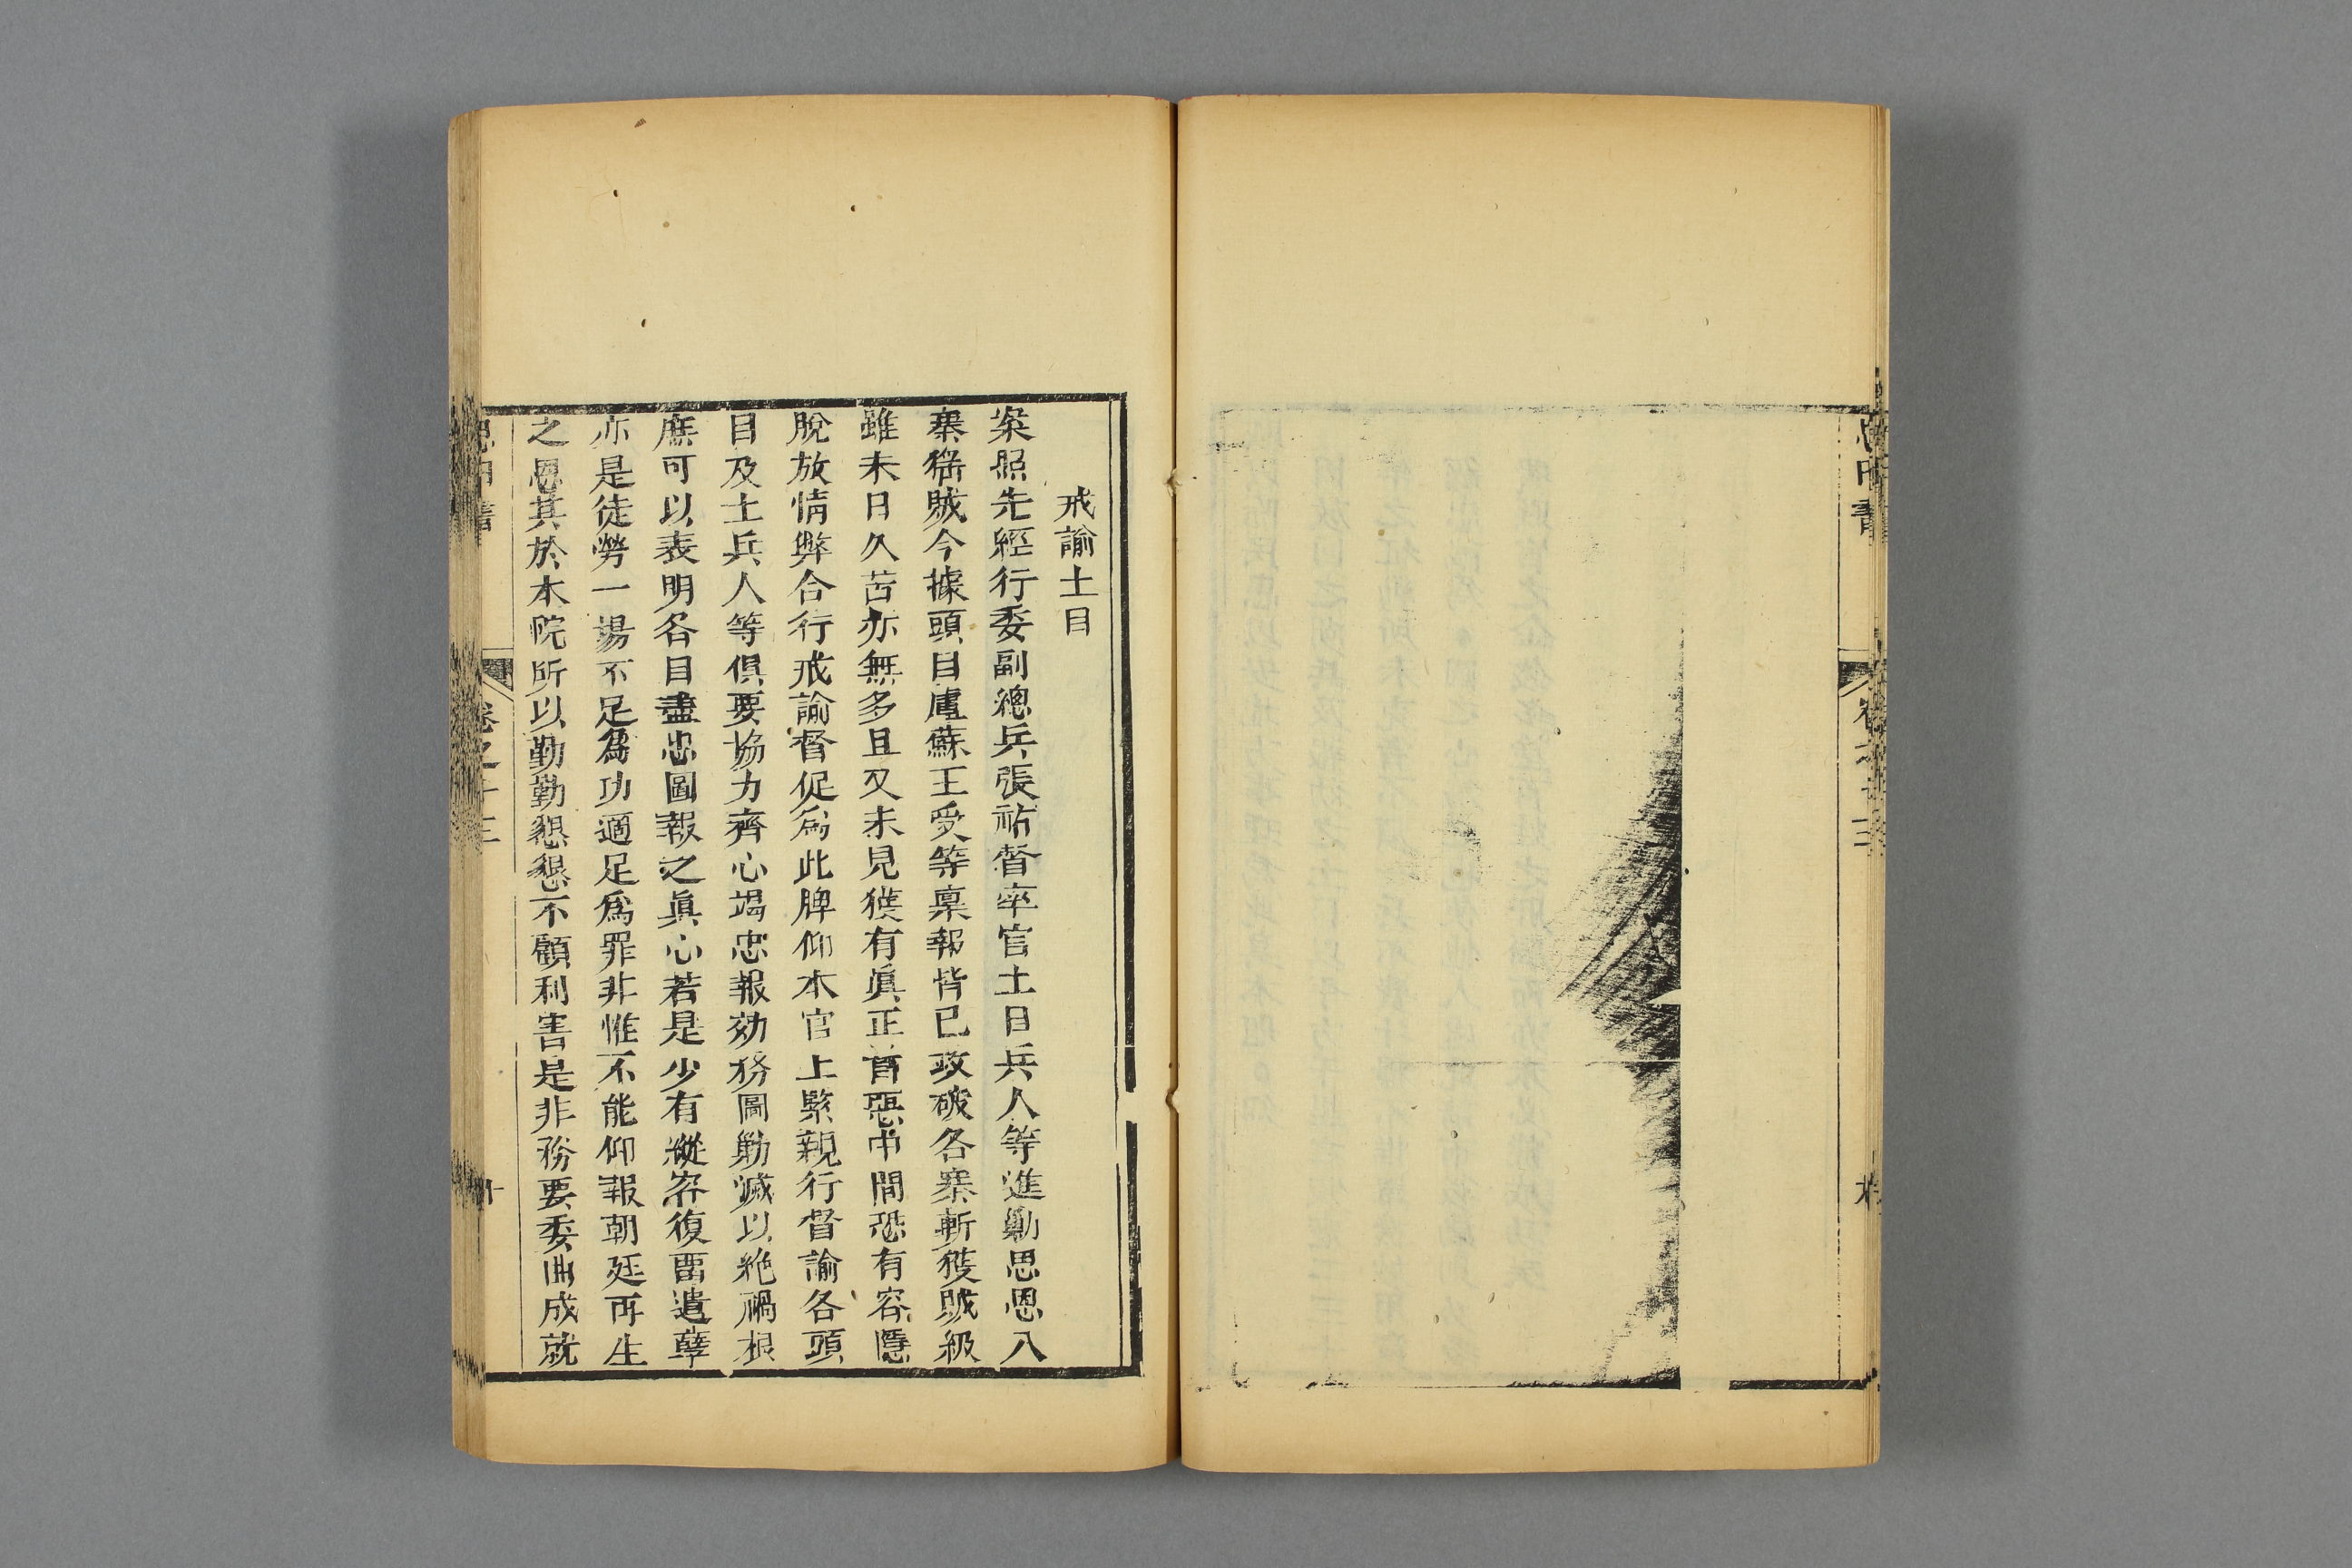 戒諭土目
案照先經行委副總兵張祐督率官土目兵人等進勦思恩八
寨猺賊今據頭目盧蘇王受等稟報皆已攻破各寨斬獲賊級
雖未日久苦亦無多且又未見獲有眞正首惡中間恐有容隱
脫放情弊合行戒諭督促爲此牌仰本官上緊親行督諭各頭
目及土兵人等俱要協力齊心竭忠報効務圖勦滅以絶禍根
庶可以表明各目盡忠圖報之眞心若是少有縱容復畱遺孽
亦是徒勞一場不足爲功適足爲罪非惟不能仰報朝廷再生
之恩其於本院所以勤勤懇懇不顧利害是非務要委曲成就
卷之十三